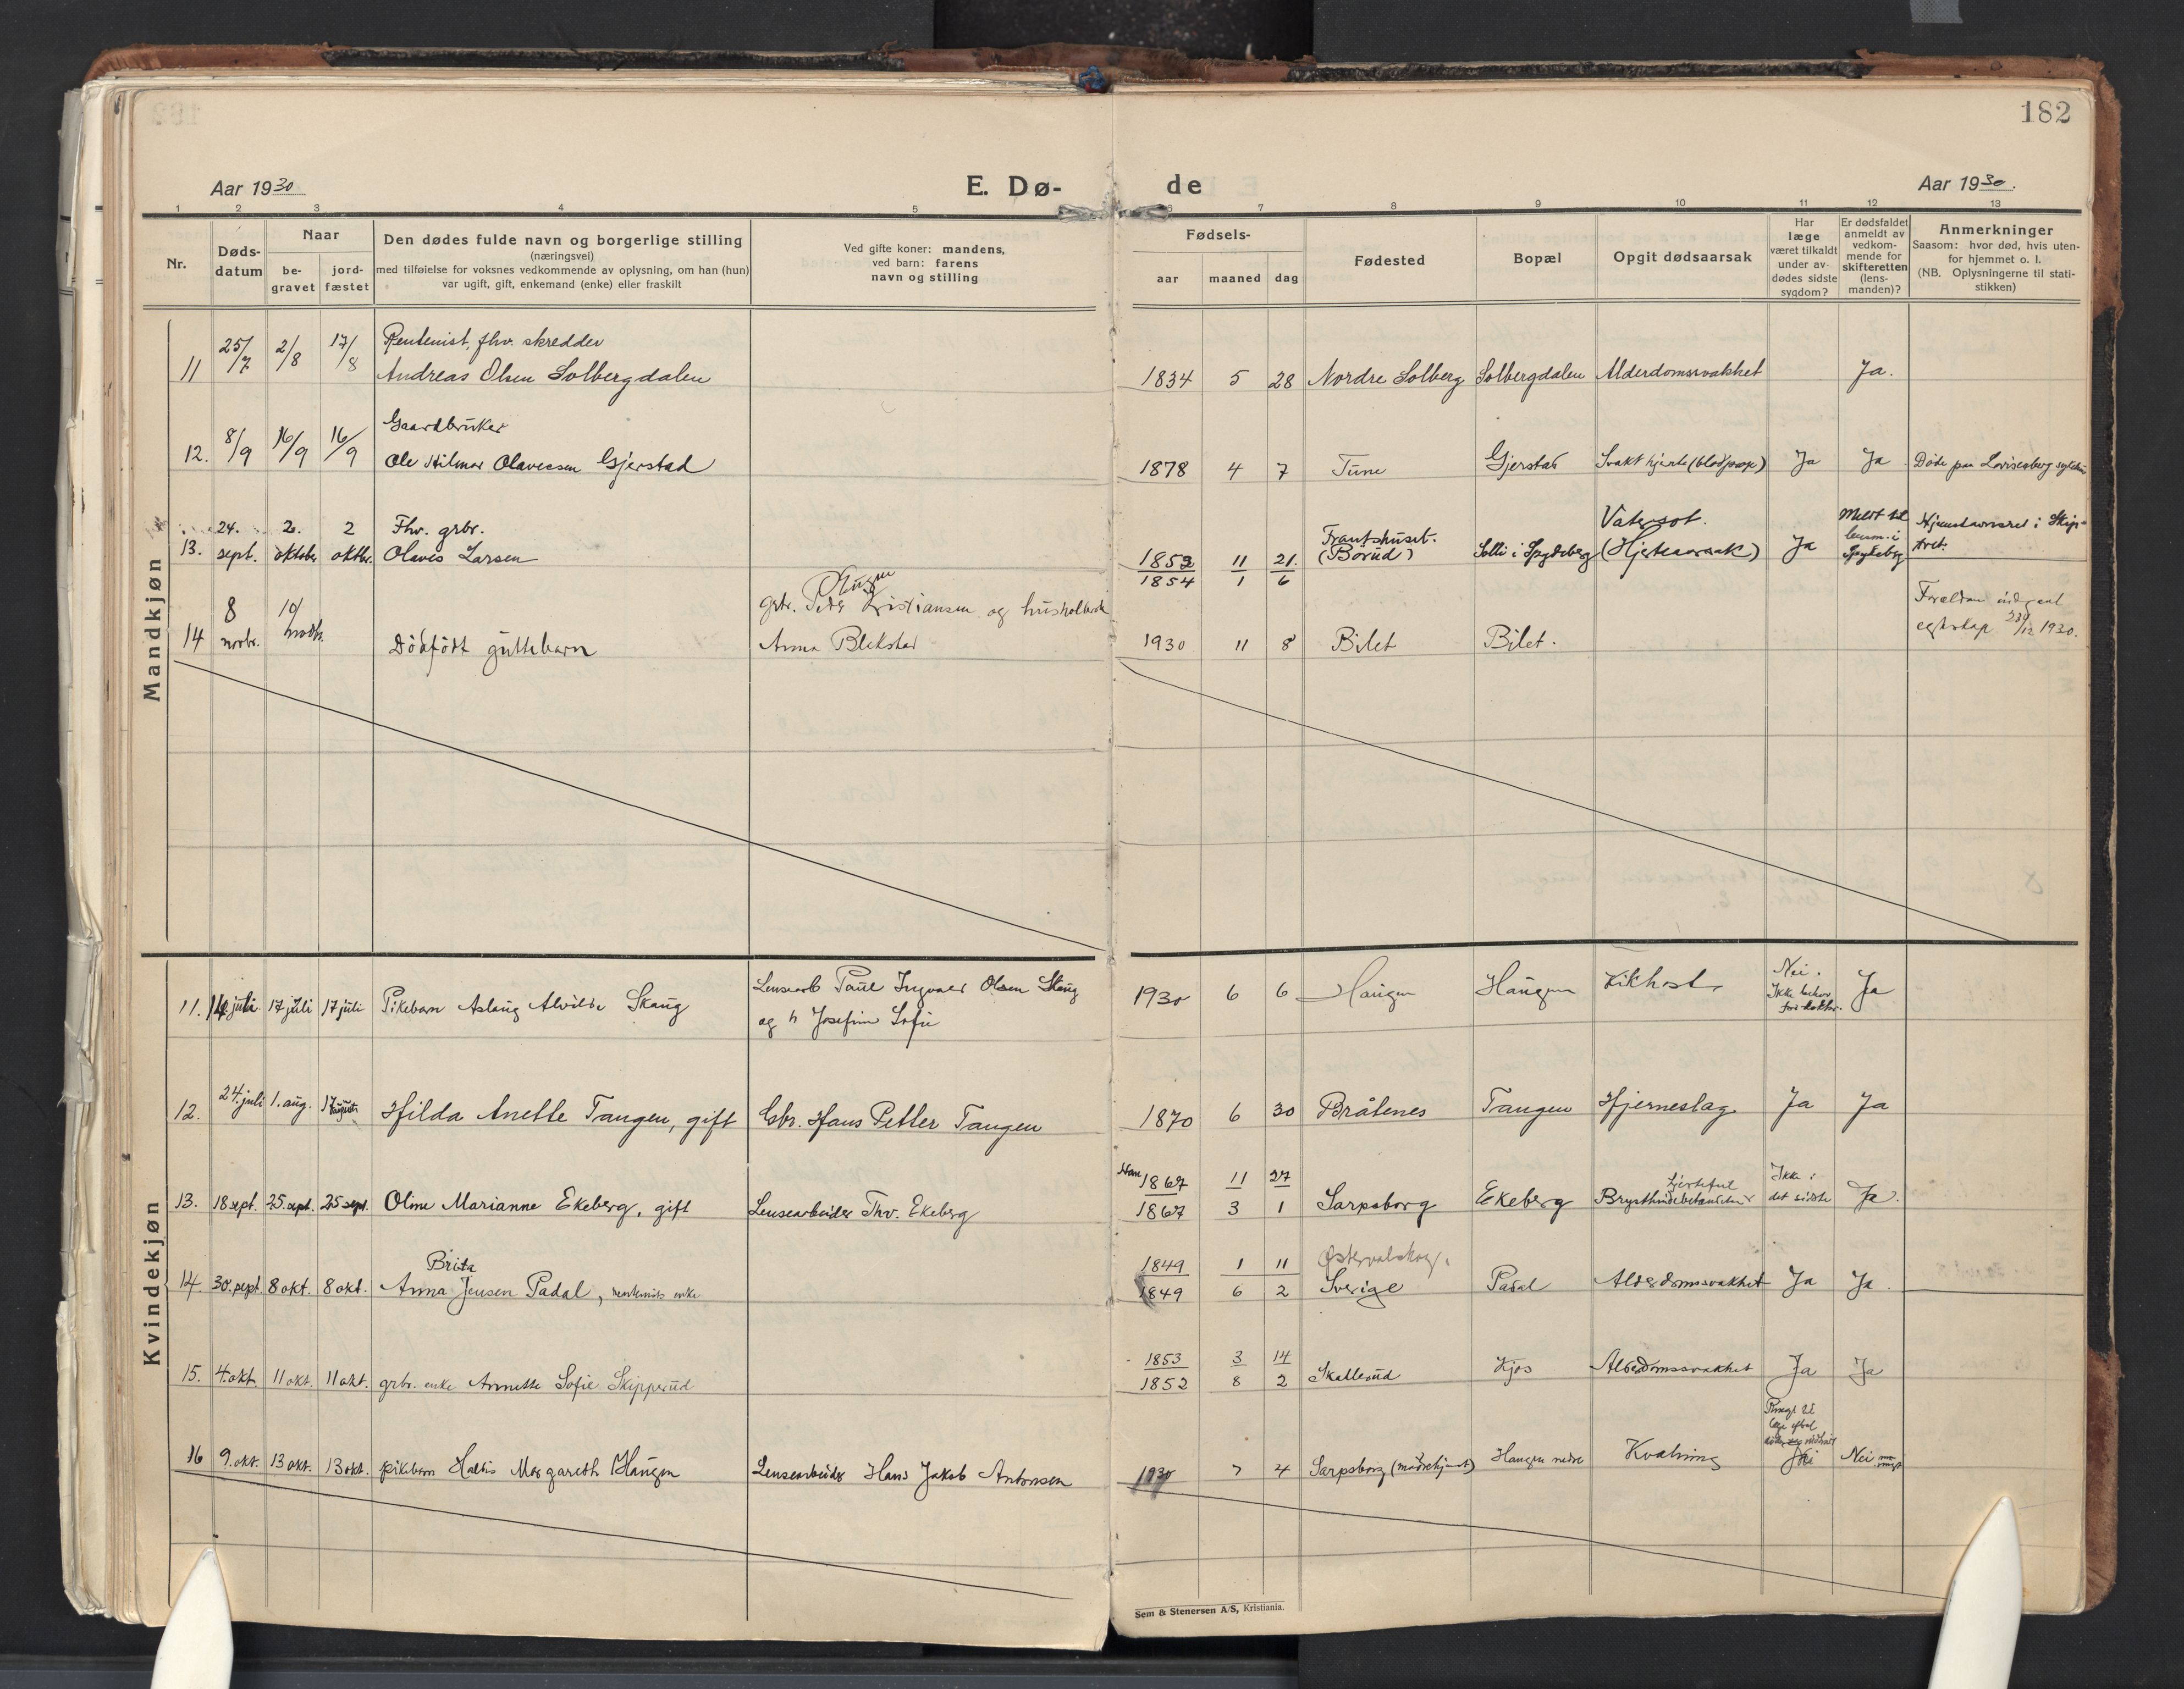 182
Aar 1930
E. Dø-
de
Aar 1930.
1 2 3 4 5 6 7 8 9 10 11 12 13
Nr.
Døds-
datum
Naar
be-
gravet
jord-
fæstet
Den dødes fulde navn og borgerlige stilling
(næringsvei)
med tilføielse for voksnes vedkommende av oplysning, om han (hun)
var ugift, gift, enkemand (enke) eller fraskilt
Ved gifte koner: mandens,
ved barn: farens
navn og stilling
Fødsels-
aar maaned dag
Fødested
Bopæl
Opgit dødsaarsak
Har
læge
været tilkaldt
under av-
dødes sidste
sygdom?
Er dødsfaldet
anmeldt av
vedkom-
mende for
skifteretten
(lens-
manden)?
Anmerkninger
Saasom: hvor død, hvis uten-
for hjemmet o. l.
(NB. Oplysningerne til stati-
stikken)
Mandkjøn
Rentenist, fhv. skredder
11 25/7 2/8 17/8 Andreas Olsen Solbergdalen 1834 5 28 Nordre Solberg Solbergdalen Alderdomssvakhet Ja.
Gaardbruker
12. 8/9 16/9 16/9 Ole Hilmar Olavessen Gjerstad 1878 4 7 Tune Gjerstad Svakt hjerte (blodprop) Ja Ja Døde paa Lovisenberg sykehus
24. 2. 2 Fhv. grbr. Frantshuset. Vatersot. Meldt til Hjemstavnsret i Skip-
13. sept. oktober oktbr. Olaves Larsen 1852 11 21. (Borud) Solli i Spydeberg (Hjerteaarsak) Ja lensm. i Spydeberg tvet.
1854 1 6
Haugen
8 10/ grbr. Peder Kristiansen og husholderske Forældre indgaat
14 novbr. novbr. Dödfödt guttebarn Anna Blekstad 1930 11 8 Bilet Bilet. egteskap 1930.
Kvindekjøn
Lensearb Paul Ingvald Olsen Skaug Nei.
11. 14 juli. 17 juli 17 juli Pikebarn Aslaug Alvilde Skaug og h Josefine Sofie 1930 6 6 Haugen Haugen Kikhoste Ikke behov for doktor. Ja
12. 24. juli 1. aug. 17 august Hilda Anette Tangen, gift Gbr. Hans Petter Tangen 1870 6 30 Bråtenes Tangen Hjerneslag. Ja Ja
1867 11 27 hjertefeil Ikke i
13. 18 sept. 25. sept. 25 sept. Oline Marianne Ekeberg, gift Lensearbeider Thv. Ekeberg 1867 3 1 Sarpsborg Ekeberg Brysthindebetændelse det sidste Ja.
Brita 1849 1 11
14. 30. sept. 8 okt. 8 okt. Anna Jensen Padal, rentenists enke 1849 6 2 Sverige Padal Alderdomssvakhet Ja Ja.
1853 3 14
15. 4. okt. 11 okt. 11 okt. grbr. enke Annette Sofie Skipperud 1852 8 2 Skallerud Kjos Alderdomssvakhet Ja Ja
16 9. okt. 13 okt. 13 okt. pikebarn Haldis Margareth Haugen Lensearbeider Hans Jakob Antonsen 1930 7 4 Sarpsborg (mødrehjemmet) Haugen nedre Kvælning Nei Nei
Sem & Stenersen A/S, Kristiania.